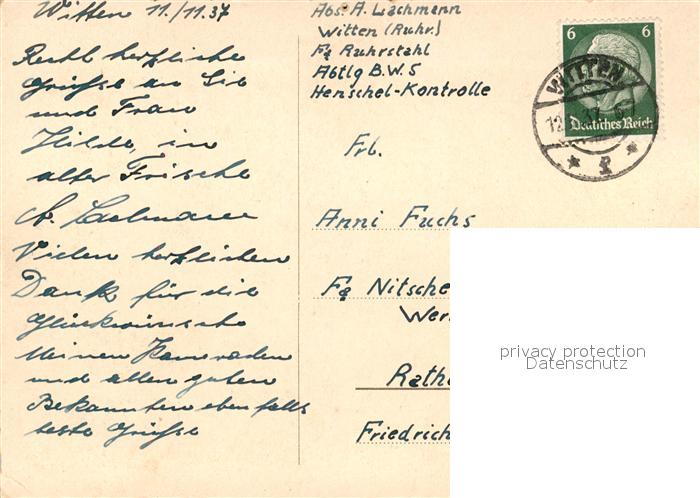 Witten 11./11.37
Recht herzliche
Grüße an Sie
und Frau
Hilde, in
alter Frische
A. Lachmann
Vielen herzlichen
Dank für die
Glückwünsche
Meinen Kameraden
und allen guten
Bekannten ebenfalls
beste Grüße
Abs. A. Lachmann
Witten (Ruhr.)
Fa Ruhrstahl
Abtlg B.W.5
Henschel-Kontrolle
6 6
Deutsches Reich
WITTEN
12
Frl.
Anni Fuchs
Fa Nitsche
Wer
Rath
Friedrich
privacy protection
Datenschutz